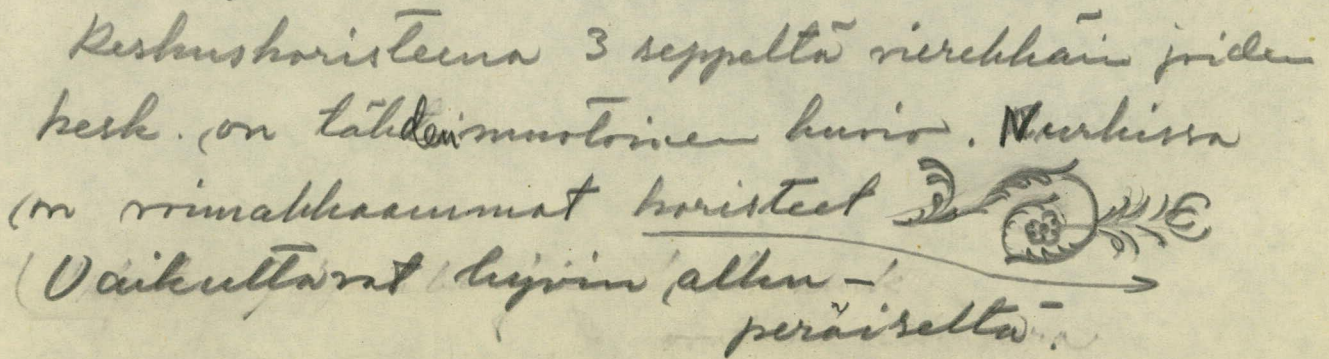 Keskuskoristeena 3 seppeltä vierekkäin joiden
kesk. on tähdenmuotoinen kuvio. Nurkissa
on voimakkaammat koristeet
(Vaikuttavat hyvin alku-
peräiseltä.